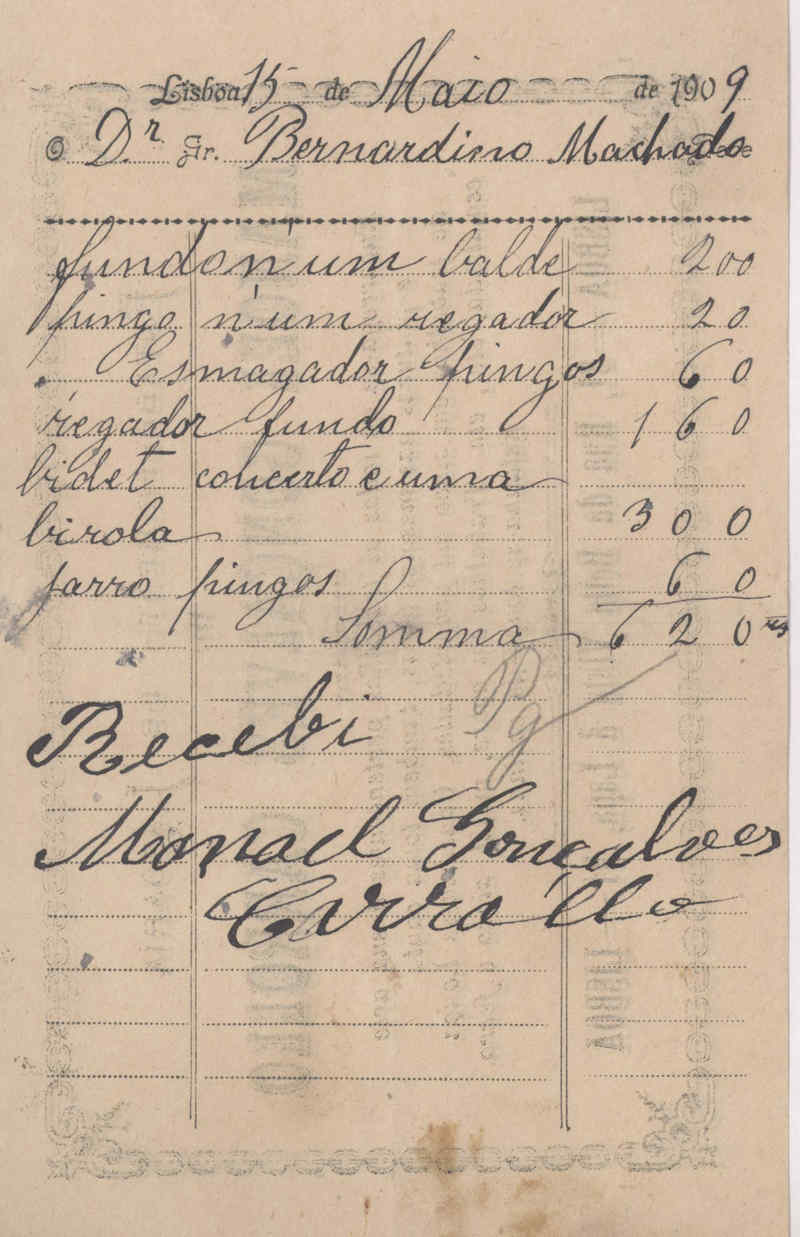 Lisboa 15 de Maio de 1909
O Dr Sr. Bernardino Machado
fundo n'um balde 200
pingo n'um regador 20
Esmagador pingos 60
regador fundo 160
bidet concerto e uma
birola 300
jarro pingos 60
Somma 620 rs
Recebi Pg
Manoel Gonçalves